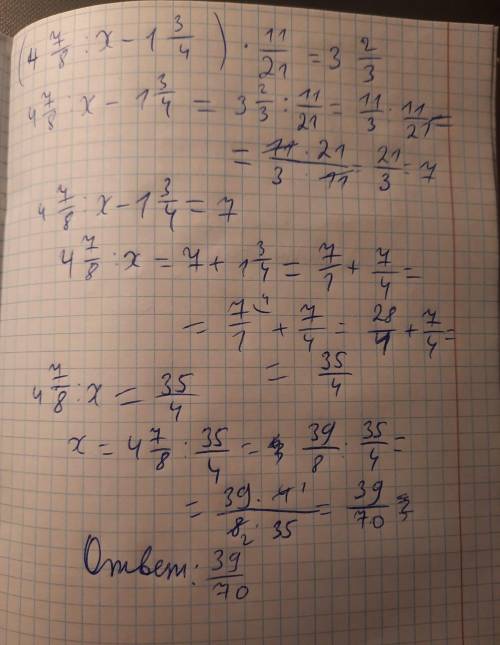 (4 7/8 : x − 1 3/4) · 11/21 = 3 2/3
4 7/8 : x − 1 3/4 = 3 2/3 : 11/21 = 11/3 · 11/21 =
= 11 · 21 / 3 · 11 = 21/3 = 7
4 7/8 : x − 1 3/4 = 7
4 7/8 : x = 7 + 1 3/4 = 7/1 + 7/4 =
= 7/1 + 7/4 = 28/4 + 7/4 =
= 35/4
4 7/8 : x = 35/4
x = 4 7/8 : 35/4 = 39/8 : 35/4 =
= 39 · 4 1 / 8 2 · 35 = 39/70
Ответ: 39/70